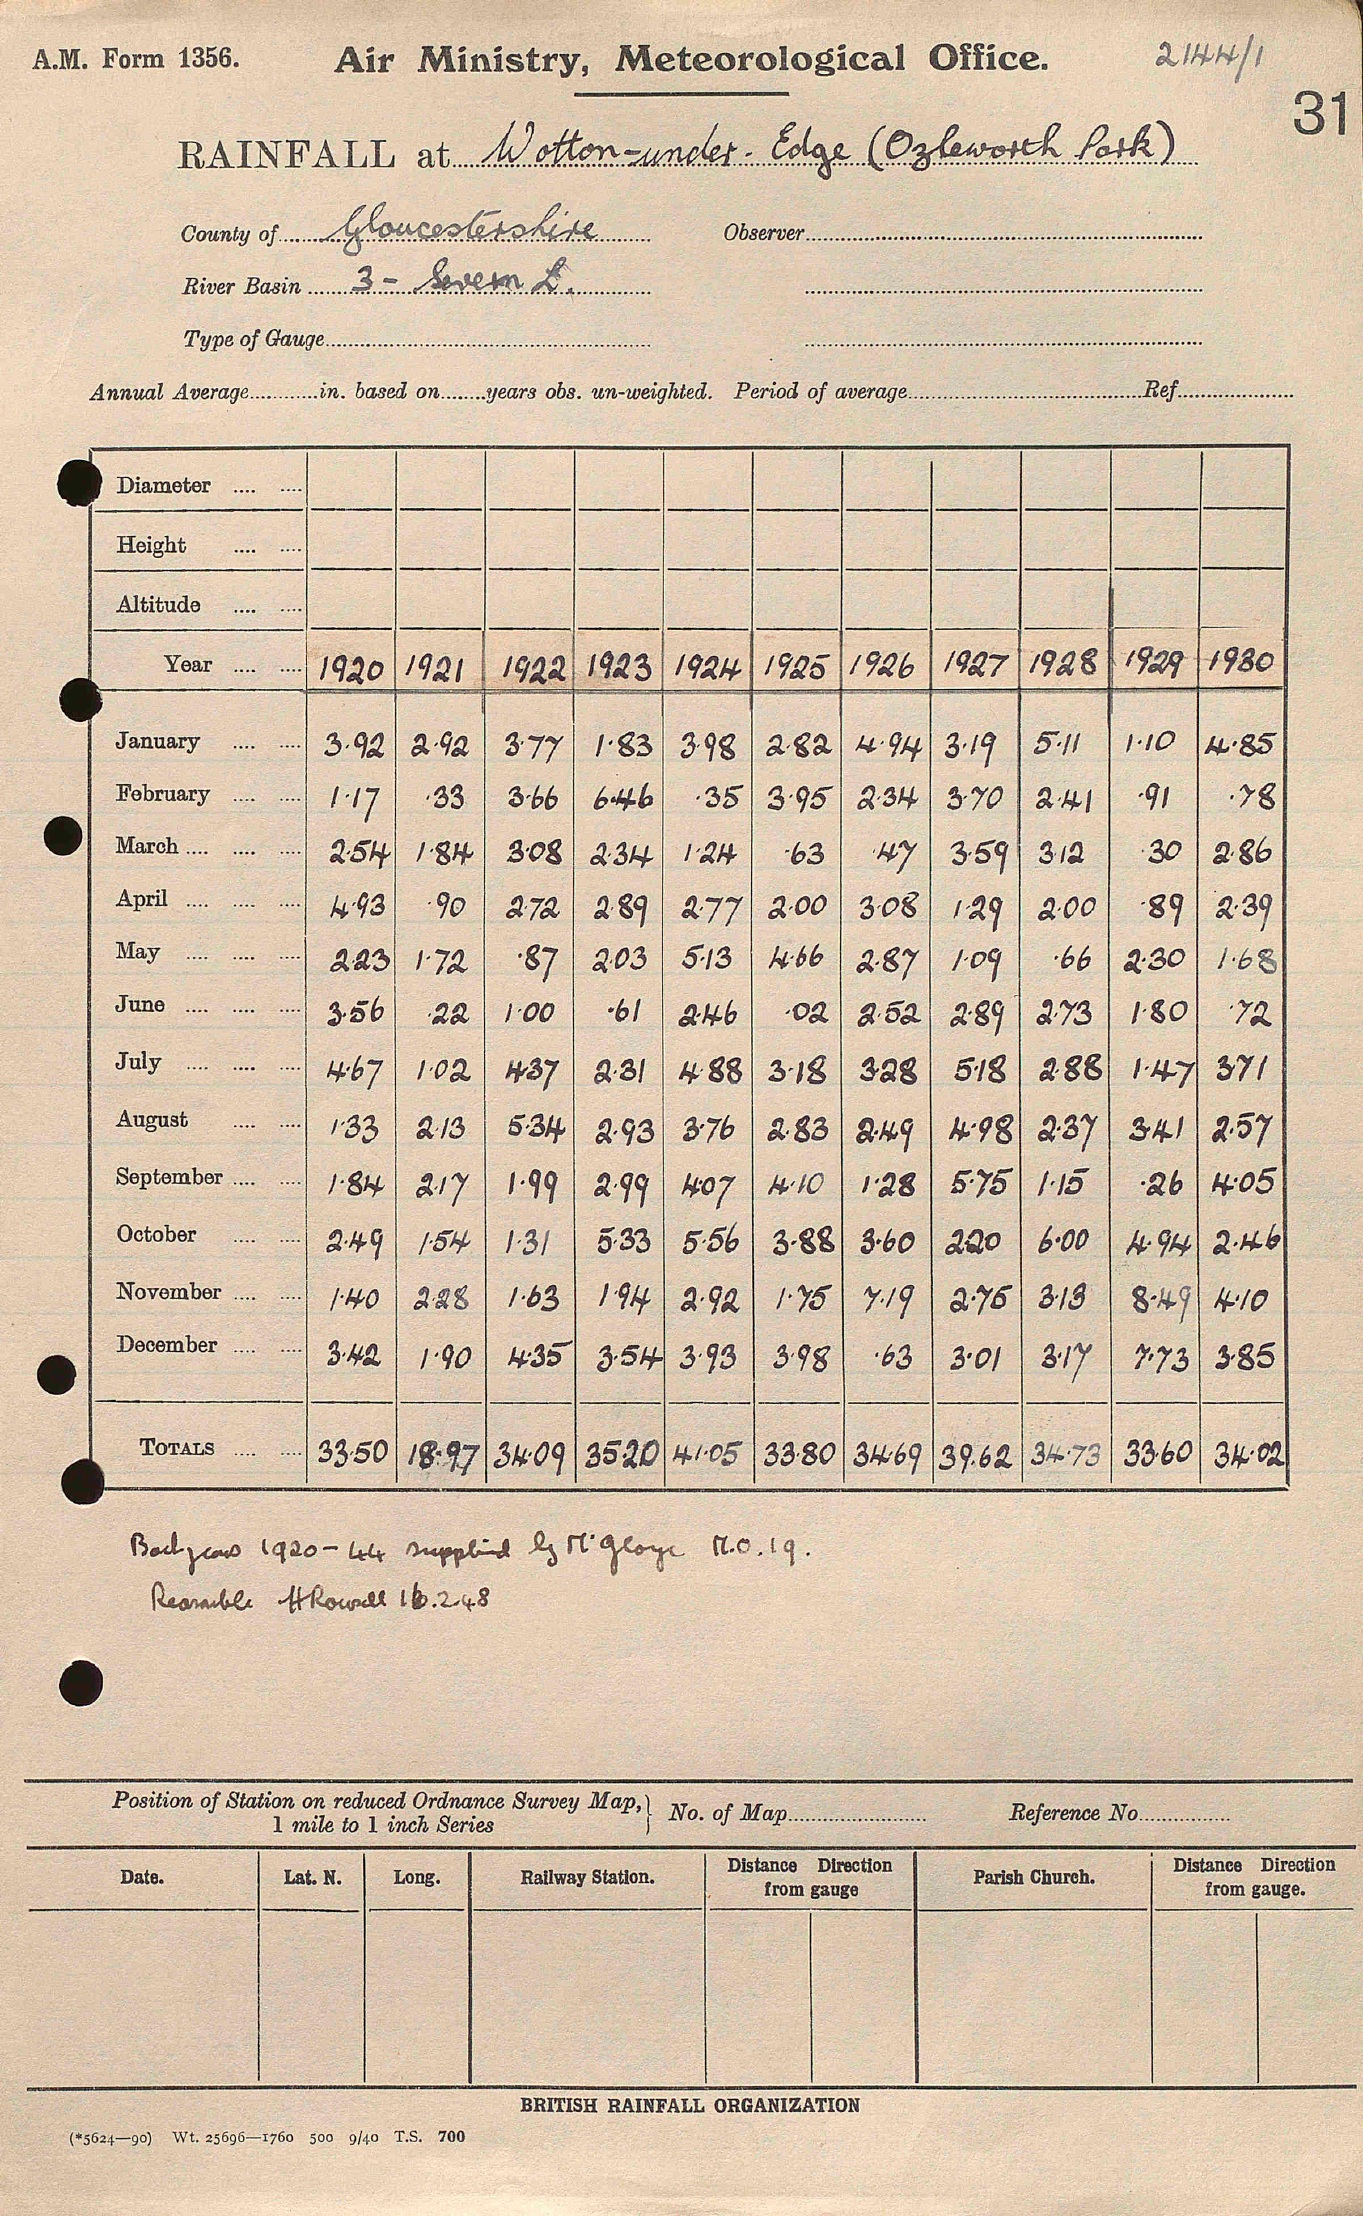 A.M. Form 1356. Air Ministry, Meteorological Office. 2144/1
31
RAINFALL at Wotton-under-Edge (Ozleworth Park)
County of Gloucestershire Observer
River Basin 3 - Severn L.
Type of Gauge
Annual Average in. based on years obs. un-weighted. Period of average Ref
Diameter
Height
Altitude
Year 1920 1921 1922 1923 1924 1925 1926 1927 1928 1929 1930
January 3.92 2.92 3.77 1.83 3.98 2.82 4.94 3.19 5.11 1.10 4.85
February 1.17 .33 3.66 6.46 .35 3.95 2.34 3.70 2.41 .91 .78
March 2.54 1.84 3.08 2.34 1.24 .63 .47 3.59 3.12 .30 2.86
April 4.93 .90 2.72 2.89 2.77 2.00 3.08 1.29 2.00 .89 2.39
May 2.23 1.72 .87 2.03 5.13 4.66 2.87 1.09 .66 2.30 1.68
June 3.56 .22 1.00 .61 2.46 .02 2.52 2.89 2.73 1.80 .72
July 4.67 1.02 4.37 2.31 4.88 3.18 3.28 5.18 2.88 1.47 3.71
August 1.33 2.13 5.34 2.93 3.76 2.83 2.49 4.98 2.37 3.41 2.57
September 1.84 2.17 1.99 2.99 4.07 4.10 1.28 5.75 1.15 .26 4.05
October 2.49 1.54 1.31 5.33 5.56 3.88 3.60 2.20 6.00 4.94 2.46
November 1.40 2.28 1.63 1.94 2.92 1.75 7.19 2.75 3.13 8.49 4.10
December 3.42 1.90 4.35 3.54 3.93 3.98 .63 3.01 3.17 7.73 3.85
TOTALS 33.50 18.97 34.09 35.20 41.05 33.80 34.69 39.62 34.73 33.60 34.02
Back years 1920-44 supplied by Mr M.O.19.
H Rowsell 16.2.48
Position of Station on reduced Ordnance Survey Map, } No. of Map Reference No
1 mile to 1 inch Series
Date. Lat. N. Long. Railway Station. Distance Direction from gauge Parish Church. Distance Direction from gauge.
BRITISH RAINFALL ORGANIZATION
(*5624—90) Wt. 25696—1760 500 9/40 T.S. 700